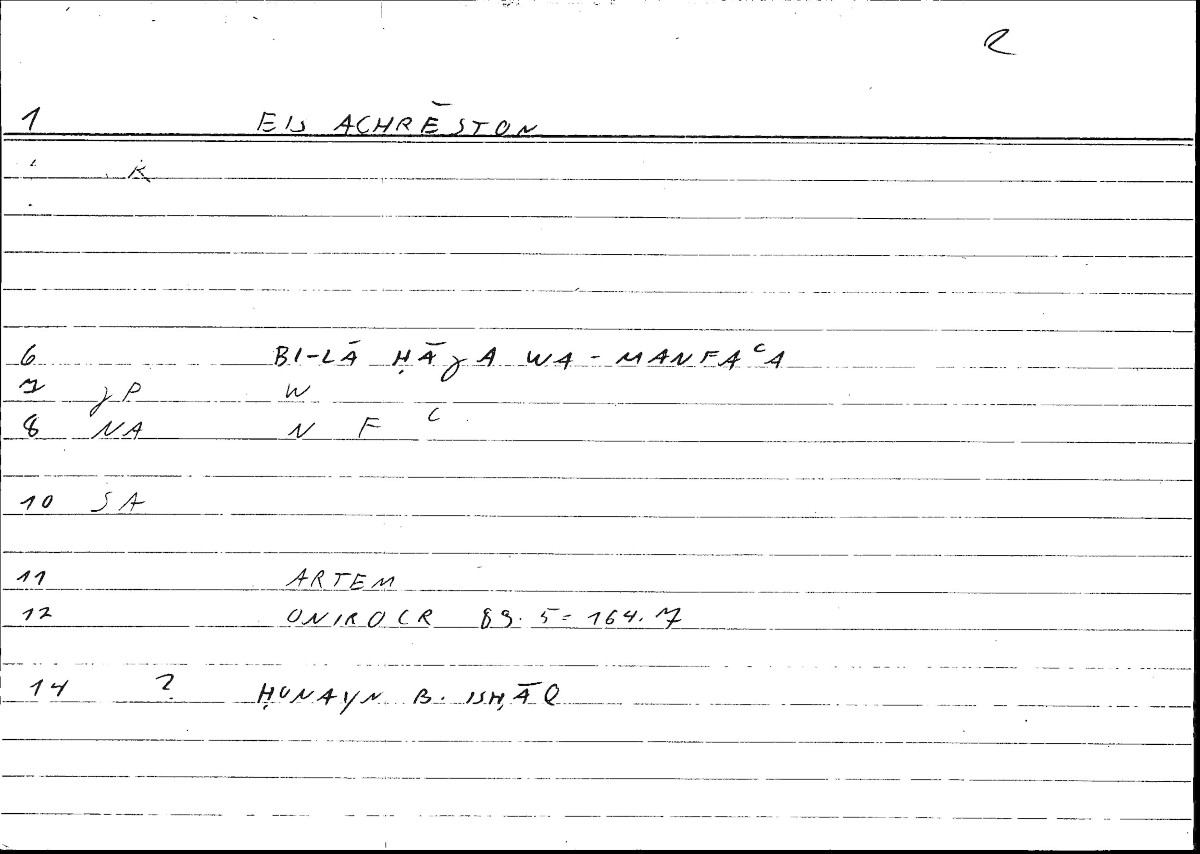 R
1 EIS ACHRĒSTON
K
6 BI-LĀ ḤĀǧA WA-MANFAᶜA
7 ǧP W
8 NA N F ᶜ
10 SA
11 ARTEM
12 ONIROCR 89.5 = 164.7
14 ? ḤUNAYN B. ISḤĀQ